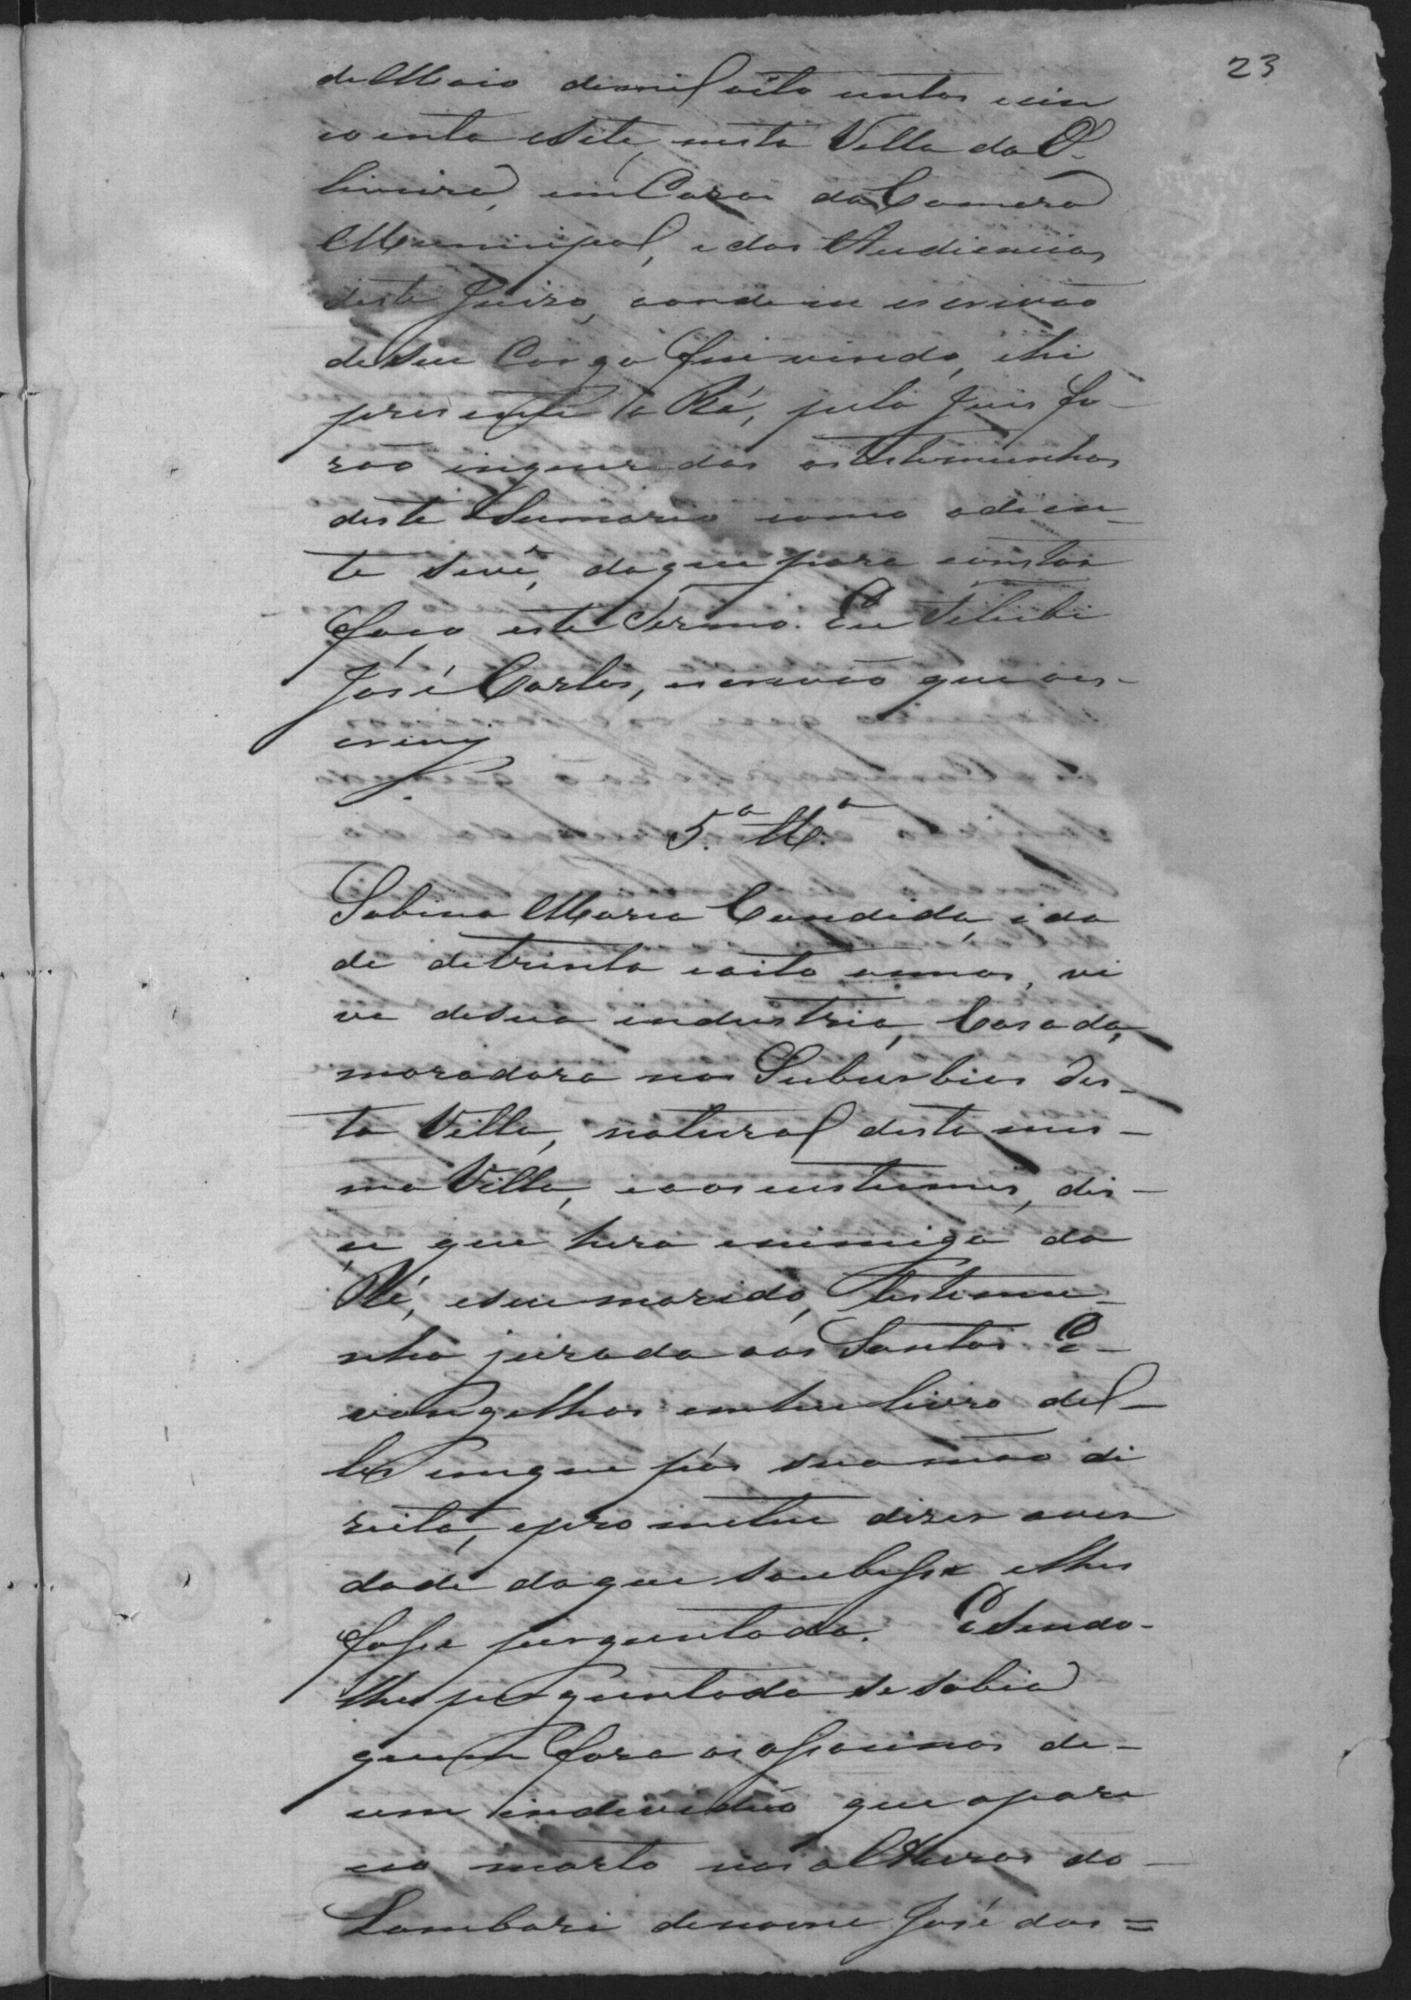 23
de Maio de mil oito centos e cin
coenta e Sete, nesta Villa da O
liveira, em Casa da Camera
Municipal, e das Audiencias
deste Juizo, aonde eu escrivão
de seu Cargo fui vindo, e hi
presente a Ré, pelo Juis fo-
rão inqueridas as testemunhas
deste Sumario como adian-
te se vê, do que para constar
faço este Termo. Eu
José Carlos, escrivão que o es-
crevy
5.ª M.ª
Sabina Maria Candida, ida
de de trinta e oito annos, vi
ve de sua industria, Casada,
moradora nos Suburbios des-
ta Villa, natural desta mes-
ma Villa, e aos custumes, dis-
se que hera enimiga da
Ré, e seu marido, Testemu-
nha jurada aos Santos E-
vangelhos em hu livro del-
les em que pôs sua mão di
reita, e prometeu dizer a ver
dade do que soubesse e lhes
fosse perguntado. E Sendo-
lhe perguntado se sabia
quem fora os assacinos de-
um individuo que apare
ceo morto nas alturas do-
Lambari de nome José dos=